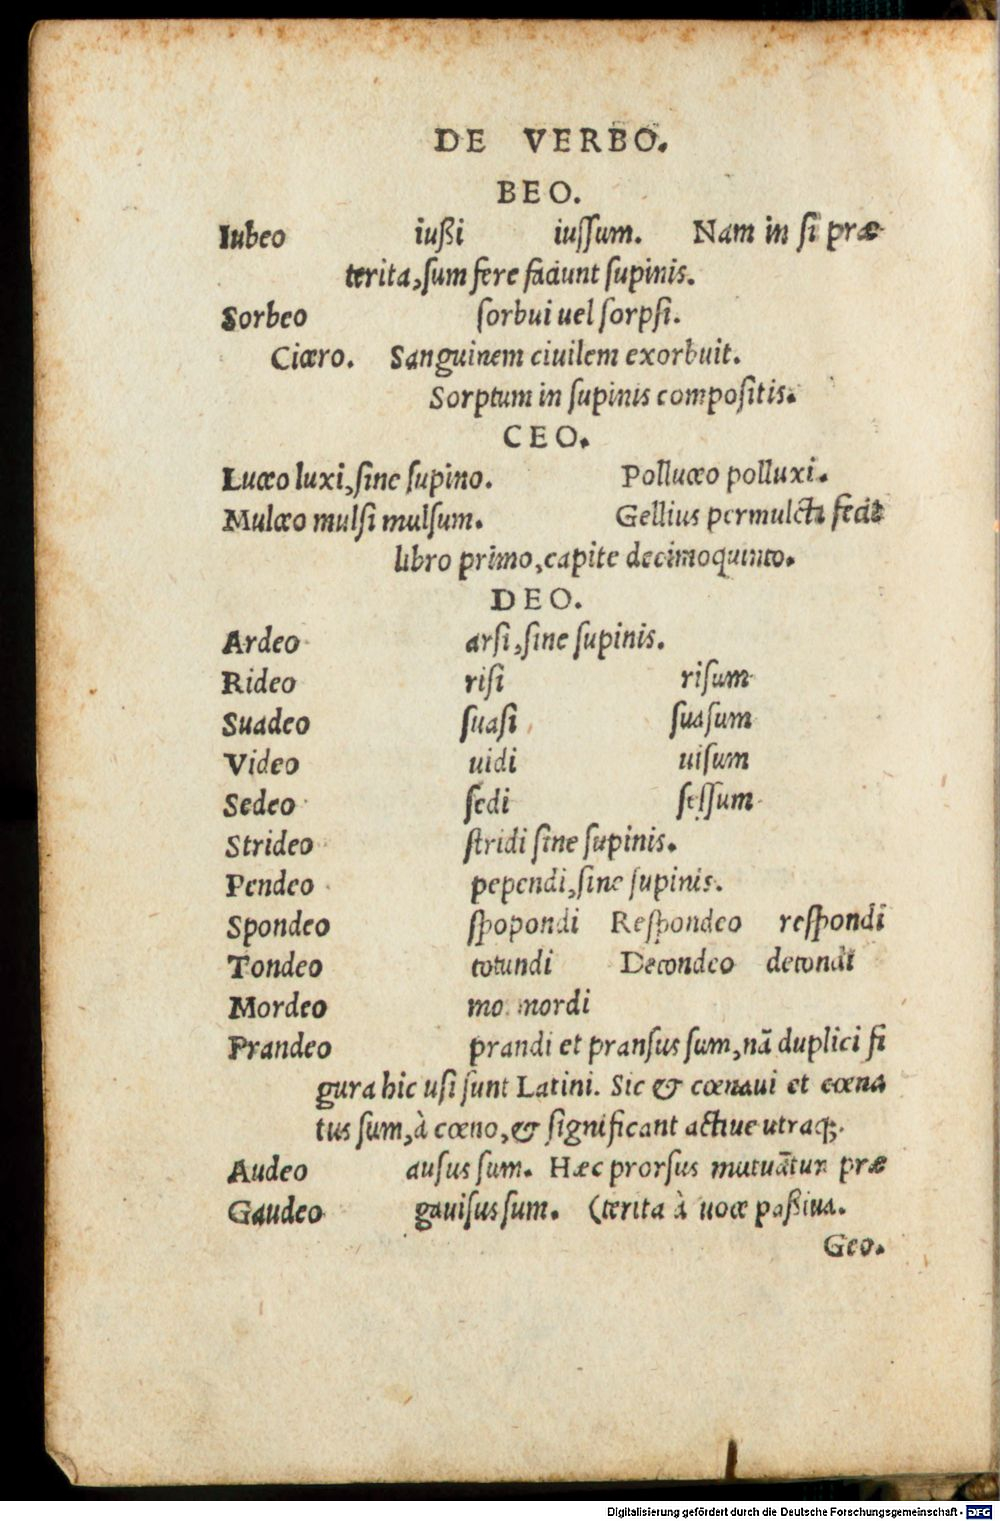 DE VERBO.
BEO.
Iubeo iußi iuſſum. Nam in ſi præ
terita, ſum fere faciunt ſupinis.
Sorbeo ſorbui uel ſorpſi.
Cicero. Sanguinem ciuilem exorbuit.
Sorptum in ſupinis compoſitis.
CEO.
Luceo luxi, ſine ſupino. Polluceo polluxi.
Mulceo mulſi mulſum. Gellius permulcta fecit
libro primo, capite decimoquinto.
DEO.
Ardeo arſi, ſine ſupinis.
Rideo riſi riſum
Suadeo ſuaſi ſuaſum
Video uidi uiſum
Sedeo ſedi ſeſſum
Strideo ſtridi ſine ſupinis.
Pendeo pependi, ſine ſupinis.
Spondeo ſpopondi Reſpondeo reſpondi
Tondeo totundi Detondeo detondi
Mordeo mo mordi
Prandeo prandi et pranſus ſum, nã duplici fi
gura hic uſi ſunt Latini. Sic & cœnaui et cœna
tus ſum, à cœno, & ſignificant actiue utraq;.
Audeo auſus ſum. Hæc prorſus mutuãtur præ
Gaudeo gauiſus ſum. (terita à uoce paßiua.
Geo.
Digitalisierung gefördert durch die Deutsche Forschungsgemeinschaft - DFG